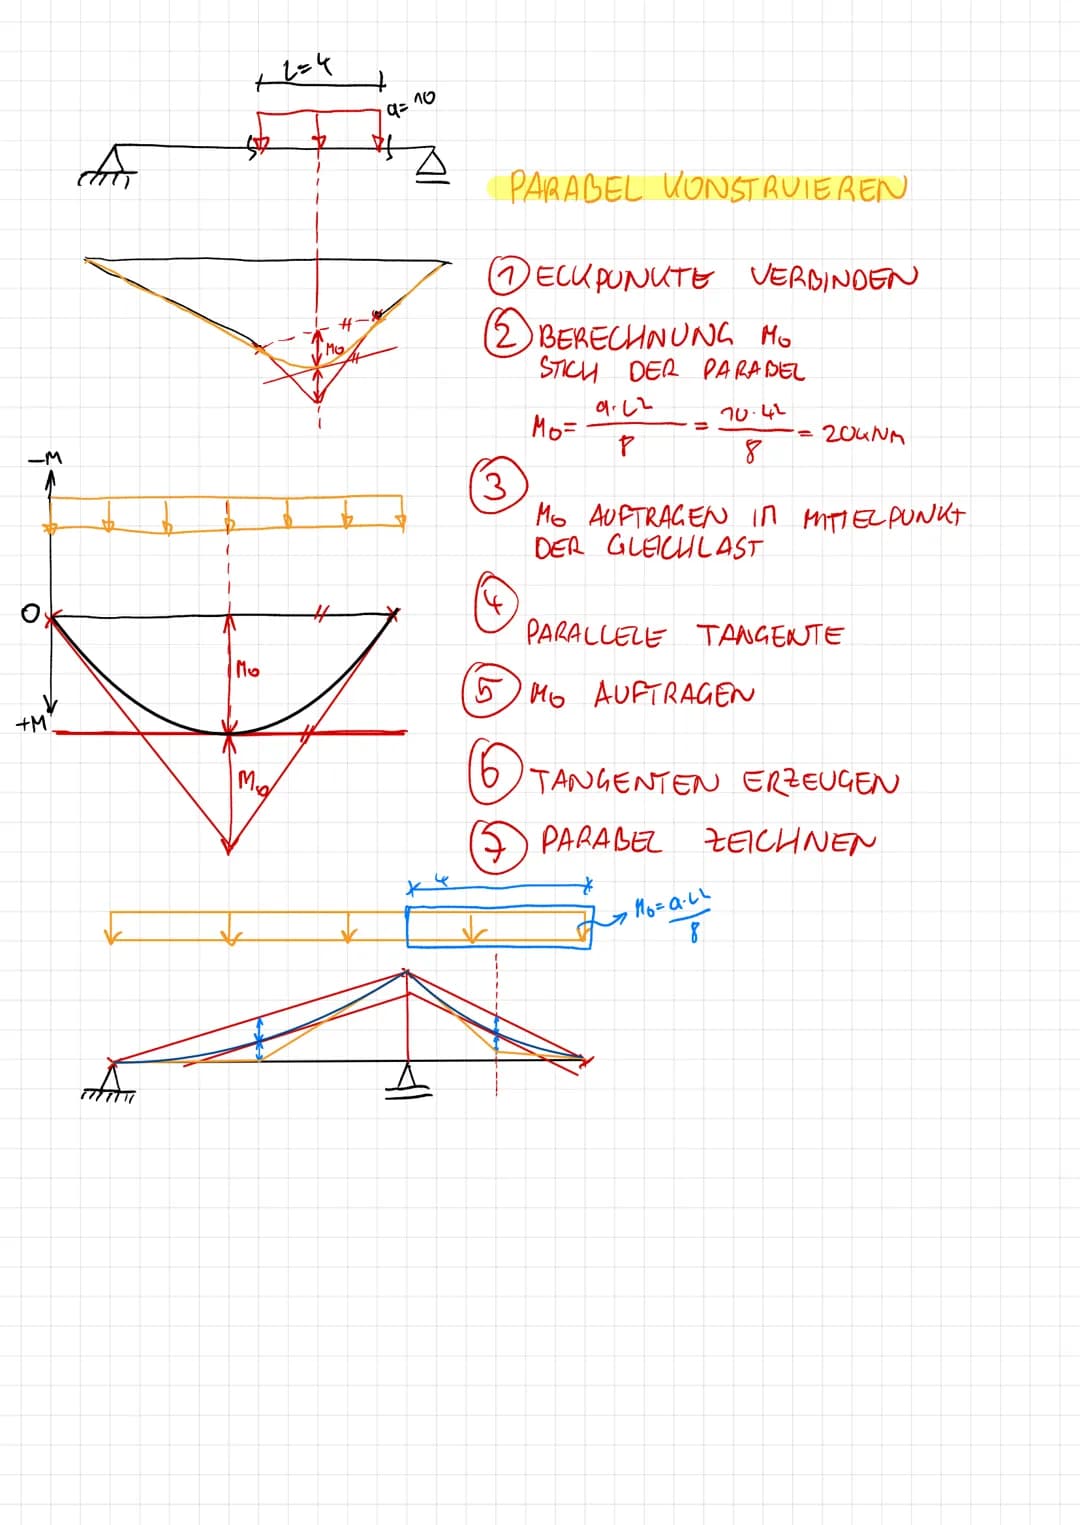 L=4
q=10
PARABEL KONSTRUIEREN
① ECKPUNKTE VERBINDEN
② BERECHNUNG M₀
STICH DER PARABEL
M₀= q·L²/8 = 10·4²/8 = 20kNm
M₀
//
//
-M
③
M₀ AUFTRAGEN IM MITTELPUNKT
DER GLEICHLAST
④
PARALLELE TANGENTE
0
//
M₀
⑤ M₀ AUFTRAGEN
+M
//
M₀
⑥ TANGENTEN ERZEUGEN
⑦ PARABEL ZEICHNEN
4
M₀= q·L²/8